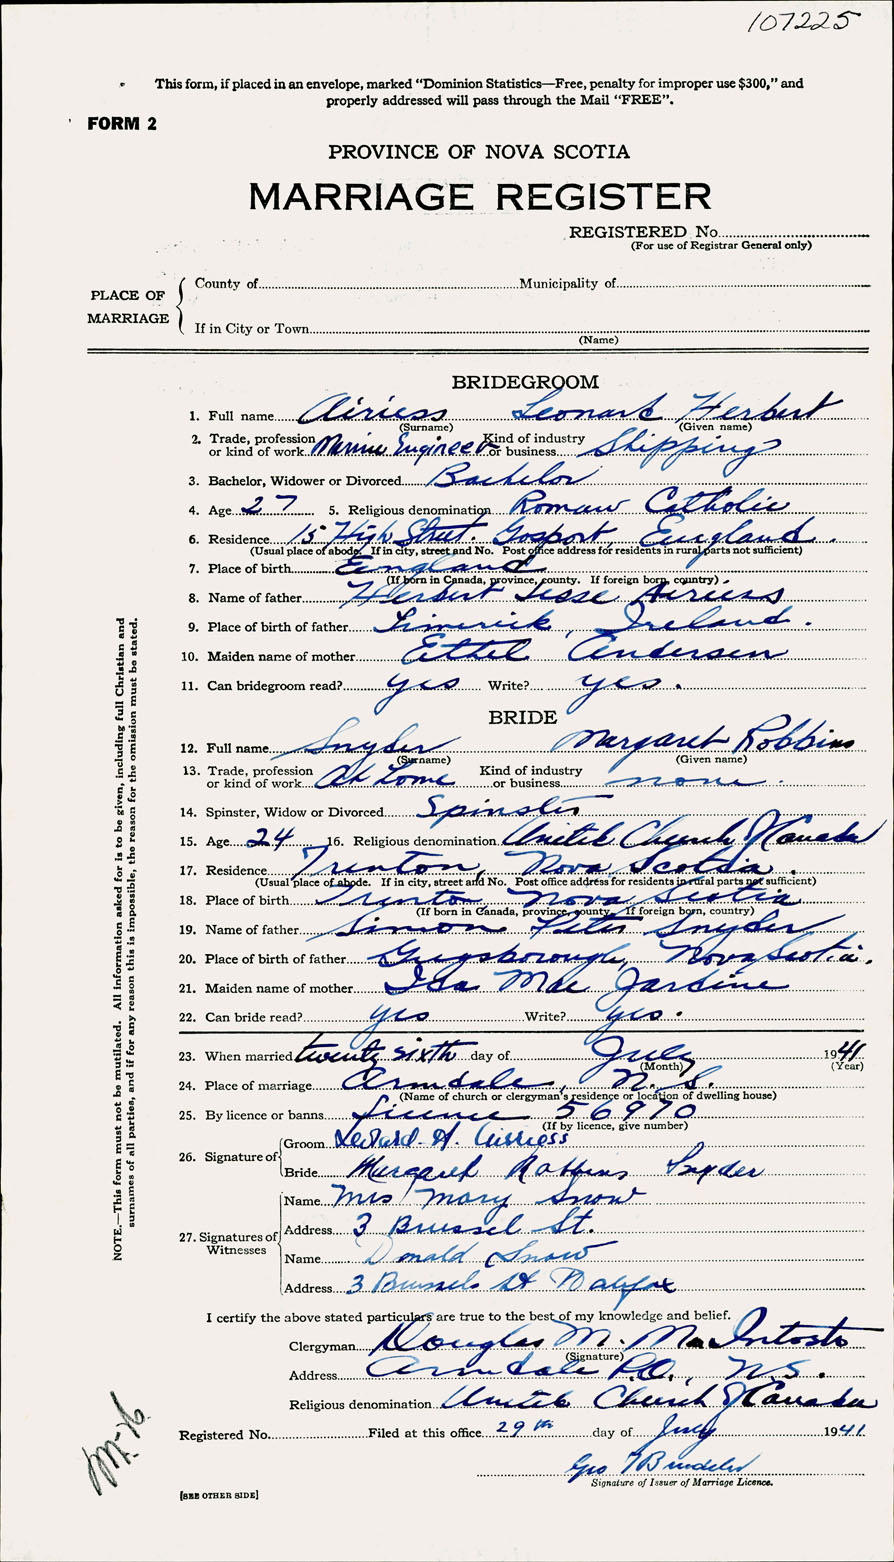 107225
This form, if placed in an envelope, marked “Dominion Statistics—Free, penalty for improper use $300,” and
properly addressed will pass through the Mail “FREE”.
FORM 2
PROVINCE OF NOVA SCOTIA
MARRIAGE REGISTER
REGISTERED No.
(For use of Registrar General only)
PLACE OF MARRIAGE
County of Municipality of
If in City or Town
(Name)
BRIDEGROOM
1. Full name Airiess Leonard Herbert
(Surname) (Given name)
2. Trade, profession or kind of work Marine Engineer Kind of industry or business Shipping
3. Bachelor, Widower or Divorced Bachelor
4. Age 27 5. Religious denomination Roman Catholic
6. Residence 15 High Street. Gosport England.
(Usual place of abode. If in city, street and No. Post office address for residents in rural parts not sufficient)
7. Place of birth England
(If born in Canada, province, county. If foreign born, country)
8. Name of father Herbert Jesse Airiess
9. Place of birth of father Limerick, Ireland.
10. Maiden name of mother Ethel Andersen
11. Can bridegroom read? yes Write? yes.
BRIDE
12. Full name Snyder Margaret Robbins
(Surname) (Given name)
13. Trade, profession or kind of work At Home Kind of industry or business none.
14. Spinster, Widow or Divorced Spinster
15. Age 24 16. Religious denomination United Church of Canada
17. Residence Trenton, Nova Scotia.
(Usual place of abode. If in city, street and No. Post office address for residents in rural parts not sufficient)
18. Place of birth Trenton Nova Scotia
(If born in Canada, province, county. If foreign born, country)
19. Name of father Simon Peter Snyder
20. Place of birth of father Guysborough, Nova Scotia.
21. Maiden name of mother Ida Mae Jardine
22. Can bride read? yes Write? yes.
23. When married twenty sixth day of July 1941
(Month) (Year)
24. Place of marriage Armdale, N.S.
(Name of church or clergyman's residence or location of dwelling house)
25. By licence or banns licence 56970
(If by licence, give number)
26. Signature of
Groom Leonard H. Airiess
Bride Margaret Robbins Snyder
27. Signatures of Witnesses
Name Mrs Mary Snow
Address 3 Brussel St.
Name Donald Snow
Address 3 Brussels St Halifax
I certify the above stated particulars are true to the best of my knowledge and belief.
Clergyman Douglas M. MacIntosh
(Signature)
Address Armdale P.O., N.S.
Religious denomination United Church of Canada
Registered No. Filed at this office 29th day of July 1941
Geo
Signature of Issuer of Marriage Licence.
[SEE OTHER SIDE]
NOTE.—This form must not be mutilated. All information asked for is to be given, including full Christian and
surnames of all parties, and if for any reason this is impossible, the reason for the omission must be stated.